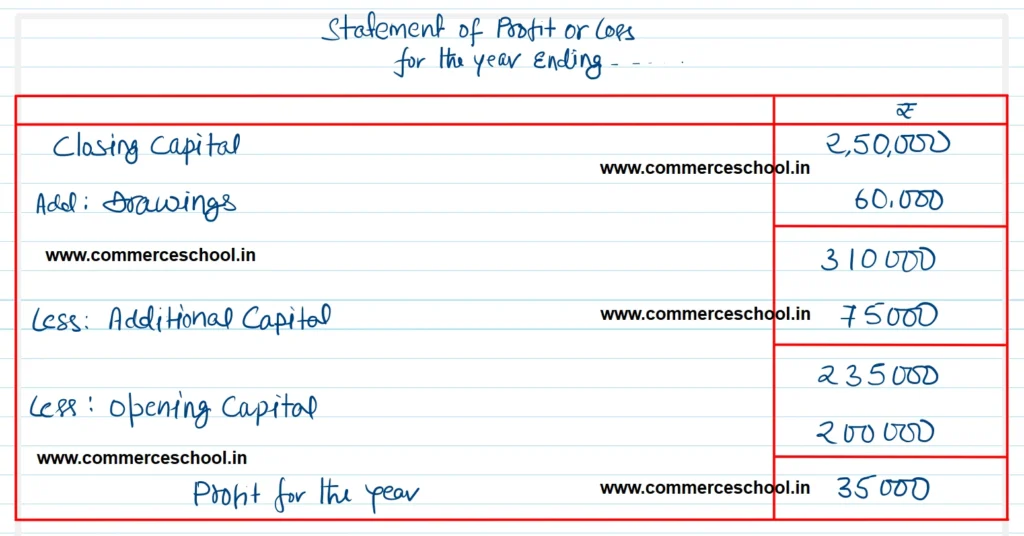 Statement of Profit or Loss
for the year Ending - - - - - -
₹
Closing Capital 2,50,000
www.commerceschool.in
Add: Drawings 60,000
www.commerceschool.in
310000
Less: Additional Capital www.commerceschool.in 75000
235000
Less: Opening Capital
200000
www.commerceschool.in
Profit for the year www.commerceschool.in 35000